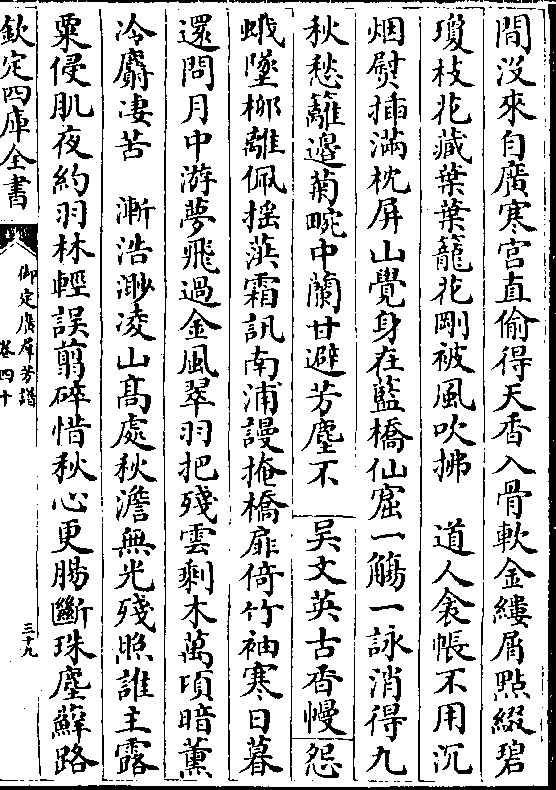 間沒來自廣寒宮直偷得天香入骨軟金縷屑點綴碧
瓊枝花藏葉葉籠花剛被風吹拂　道人衾帳不用沉
烟熨揷滿枕屏山覺身在藍橋仙窟一觴一詠消得九
秋愁籬邊菊畹中蘭甘避芳塵不　吳文英古香慢怨
蛾墜柳離佩揺葓霜訊南浦謾掩橋扉倚竹袖寒日暮
還問月中游夢飛過金風翠羽把殘雲剩木萬頃暗薰
冷麝凄苦　漸浩渺凌山髙處秋澹無光殘照誰主露
粟侵肌夜約羽林輕誤翦碎惜秋心更腸斷珠塵蘚路
欽定四庫全書
御定廣羣芳譜
卷四十
三十九